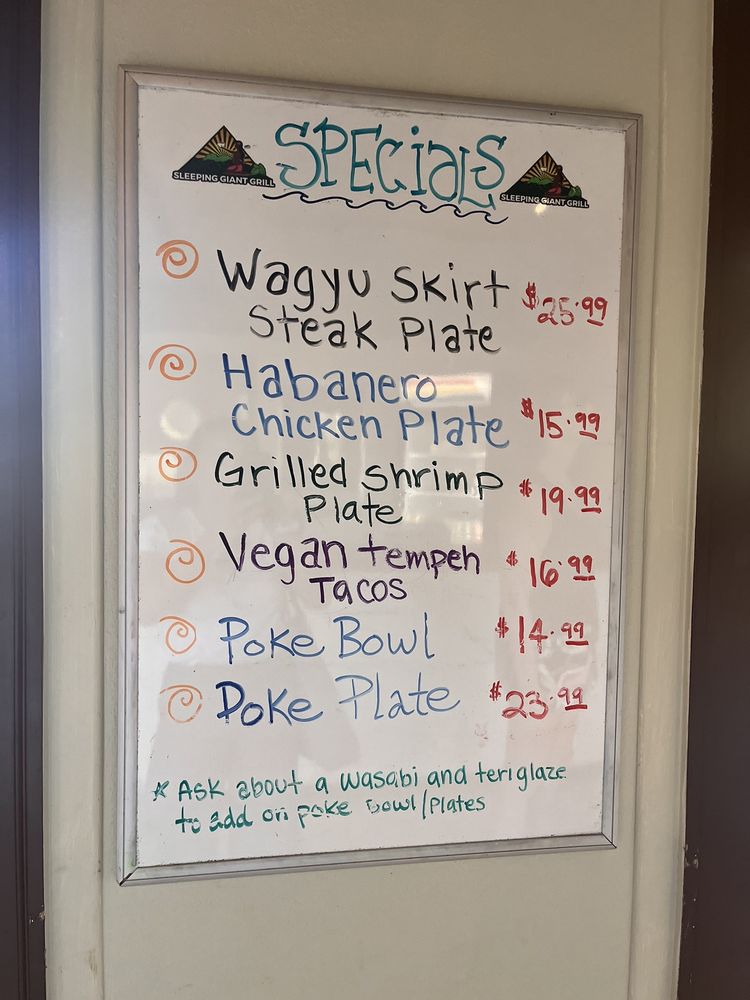 SPECiALS
SLEEPING GIANT GRILL
SLEEPING GIANT GRILL
Wagyu Skirt $25.99
Steak Plate
Habanero
Chicken Plate $15.99
Grilled Shrimp $19.99
Plate
Vegan tempeh $16.99
Tacos
Poke Bowl $14.99
Poke Plate $23.99
* Ask about a wasabi and teri glaze
to add on poke bowl/Plates